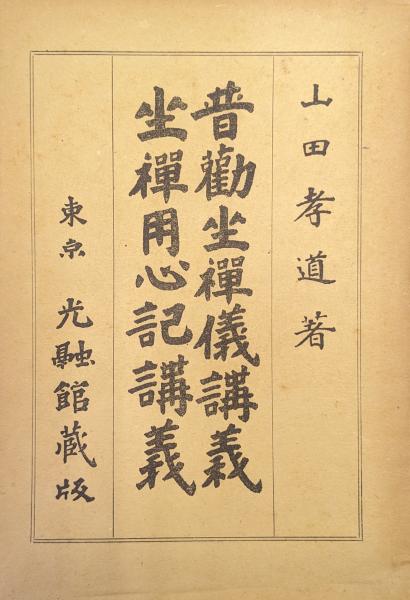 山田孝道著
普勸坐禪儀講義
坐禪用心記講義
東京 光融館藏版